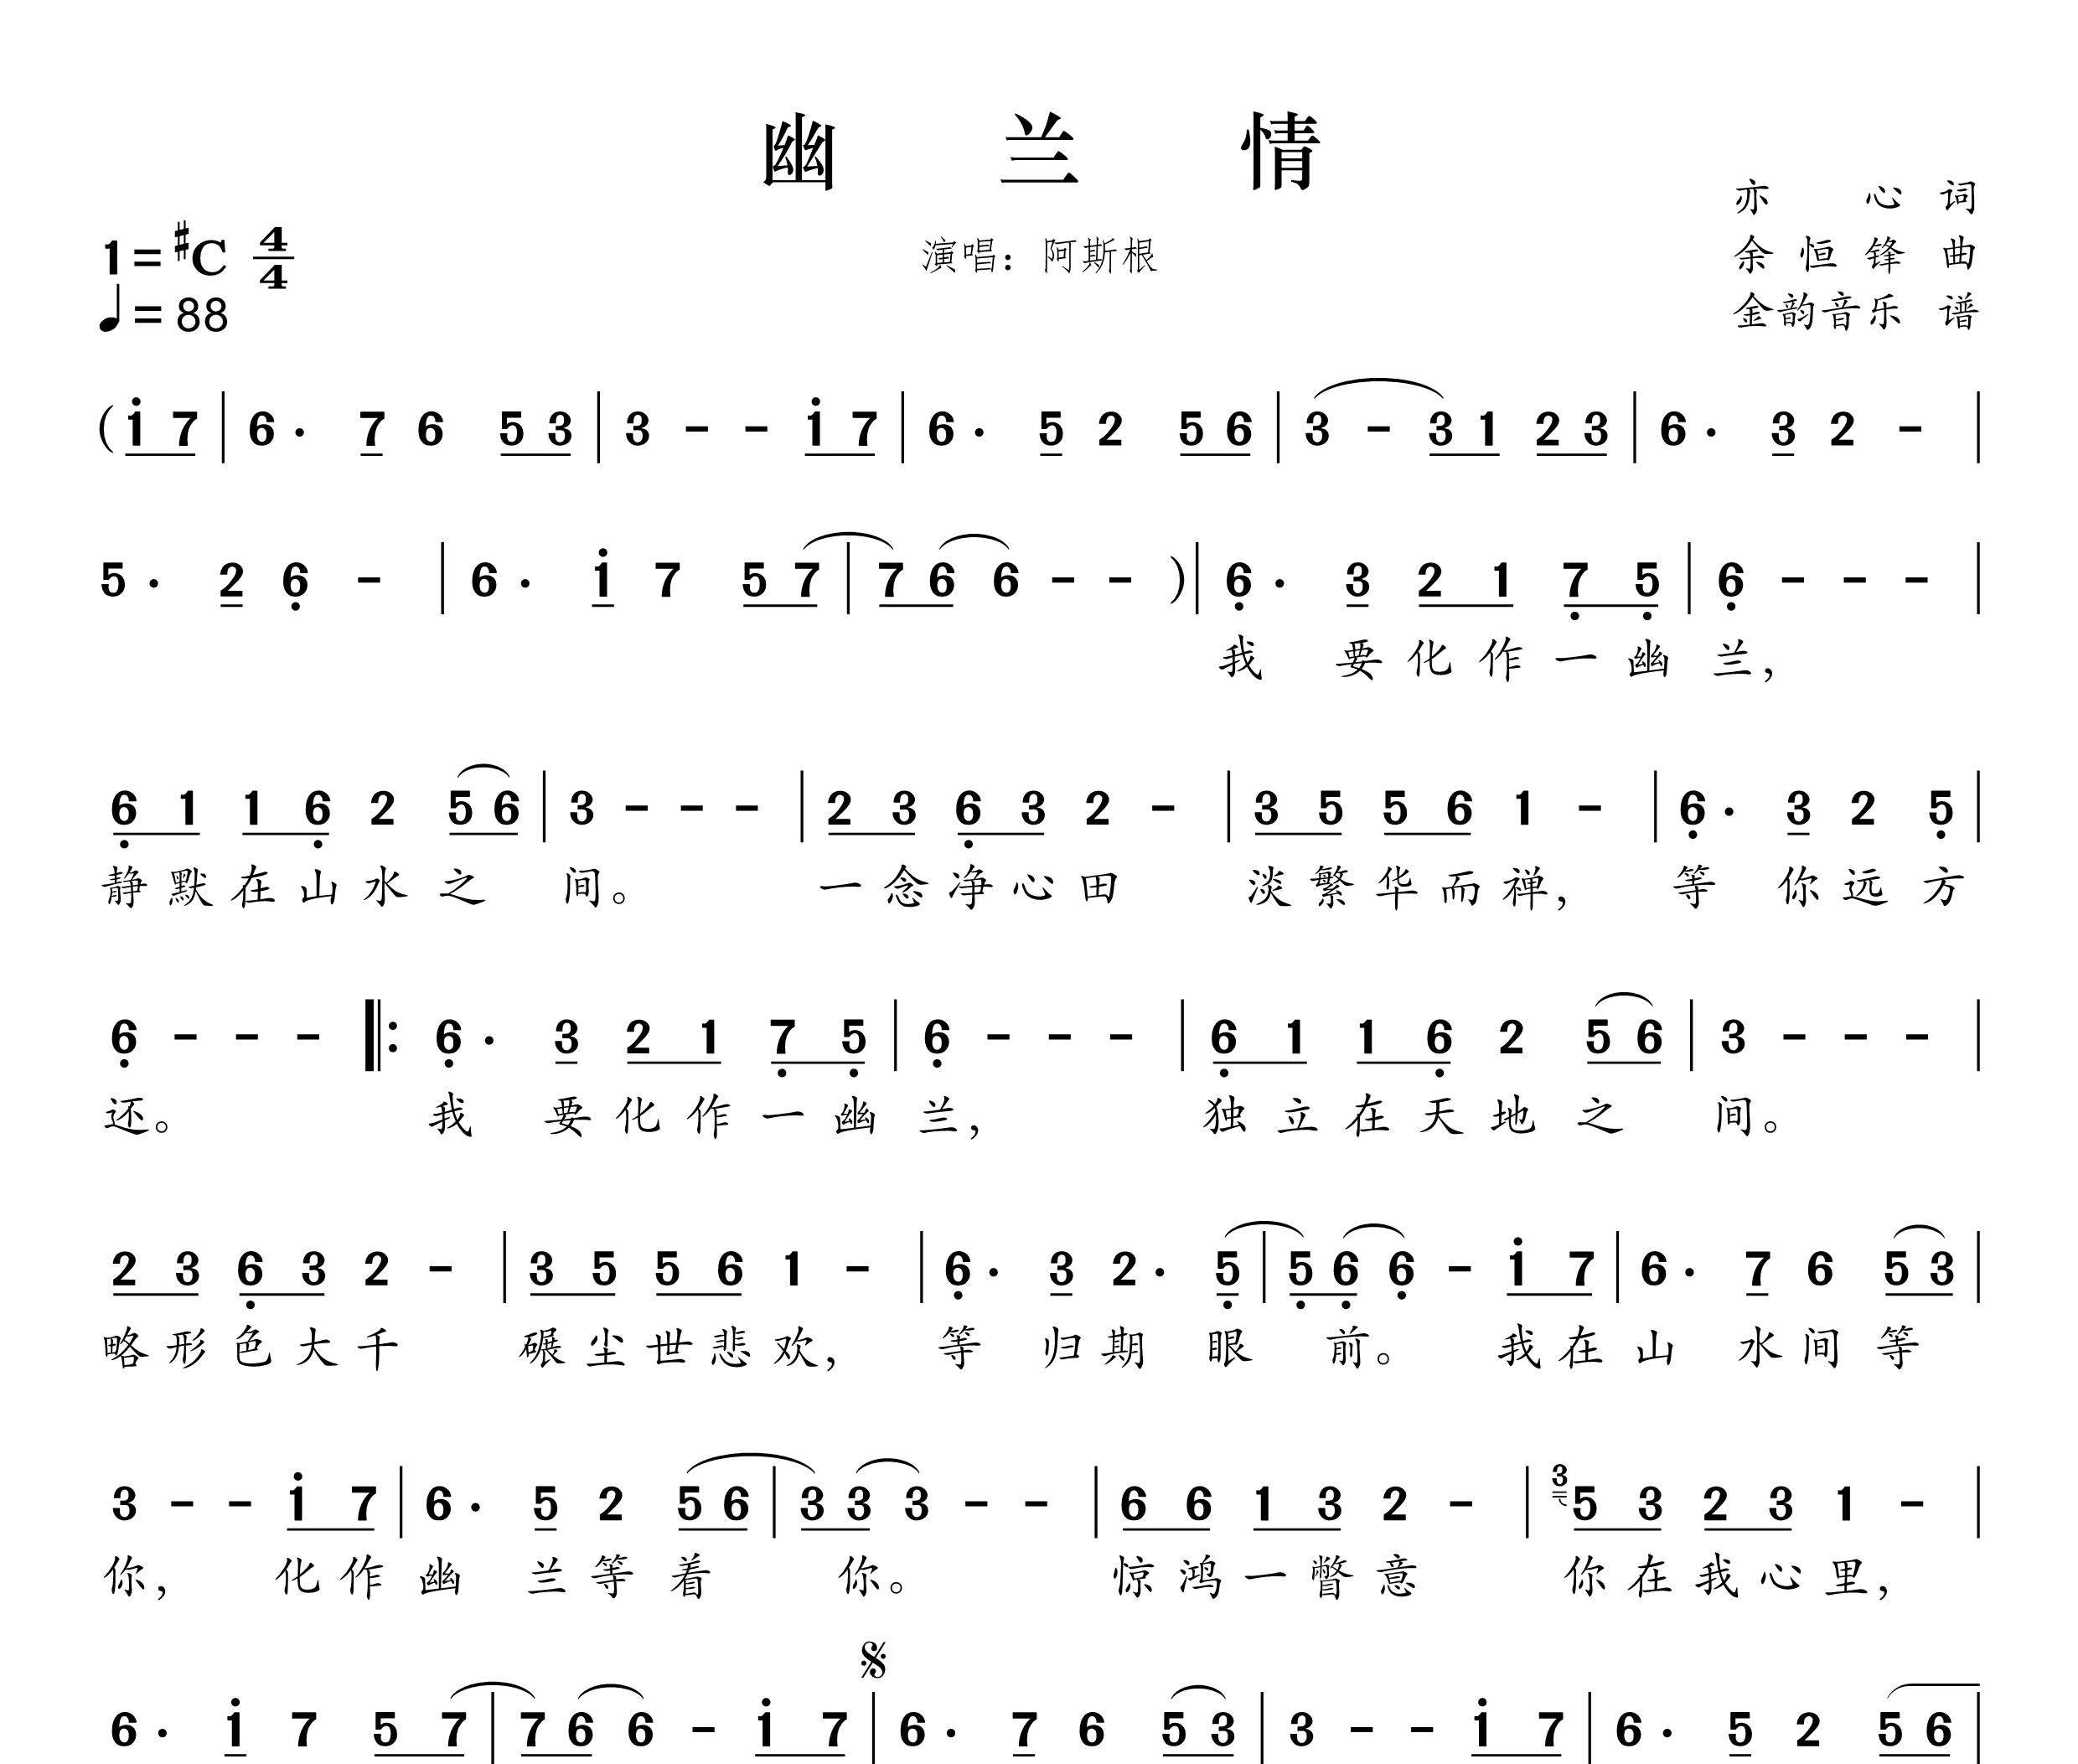 幽兰情
亦心 词
1=♯C 4/4
演唱：阿斯根
余恒锋 曲
♩=88
金韵音乐 谱
(i̇ 7 | 6· 7 6 5 3 | 3 - - i̇ 7 | 6· 5 2 5 6 | 3 - 3 1 2 3 | 6· 3 2 - |
5· 2 6̣ - | 6· i̇ 7 5 7 | 7 6 6 - - )| 6̣· 3 2 1 7̣ 5̣ | 6̣ - - - |
我 要 化 作 一 幽 兰，
6̣ 1 1 6̣ 2 5 6 | 3 - - - | 2 3 6̣ 3 2 - | 3 5 5 6 1 - | 6̣· 3 2 5̣ |
静 默 在 山 水 之 间。 一 念 净 心 田 淡 繁 华 而 禅， 等 你 远 方
6̣ - - - ‖: 6̣· 3 2 1 7̣ 5̣ | 6̣ - - - | 6̣ 1 1 6̣ 2 5 6 | 3 - - - |
还。 我 要 化 作 一 幽 兰， 独 立 在 天 地 之 间。
2 3 6̣ 3 2 - | 3 5 5 6 1 - | 6̣· 3 2· 5̣ | 5̣ 6̣ 6̣ - i̇ 7 | 6· 7 6 5 3 |
略 形 色 大 千 碾 尘 世 悲 欢， 等 归 期 眼 前。 我 在 山 水 间 等
3 - - i̇ 7 | 6· 5 2 5 6 | 3 3 3 - - | 6 6 1 3 2 - | 3 5 3 2 3 1 - |
你， 化 作 幽 兰 等 着 你。 惊 鸿 一 瞥 意 你 在 我 心 里，
6· i̇ 7 5 7 | 7 6 6 - i̇ 7 | 6· 7 6 5 3 | 3 - - i̇ 7 | 6· 5 2 5 6 |